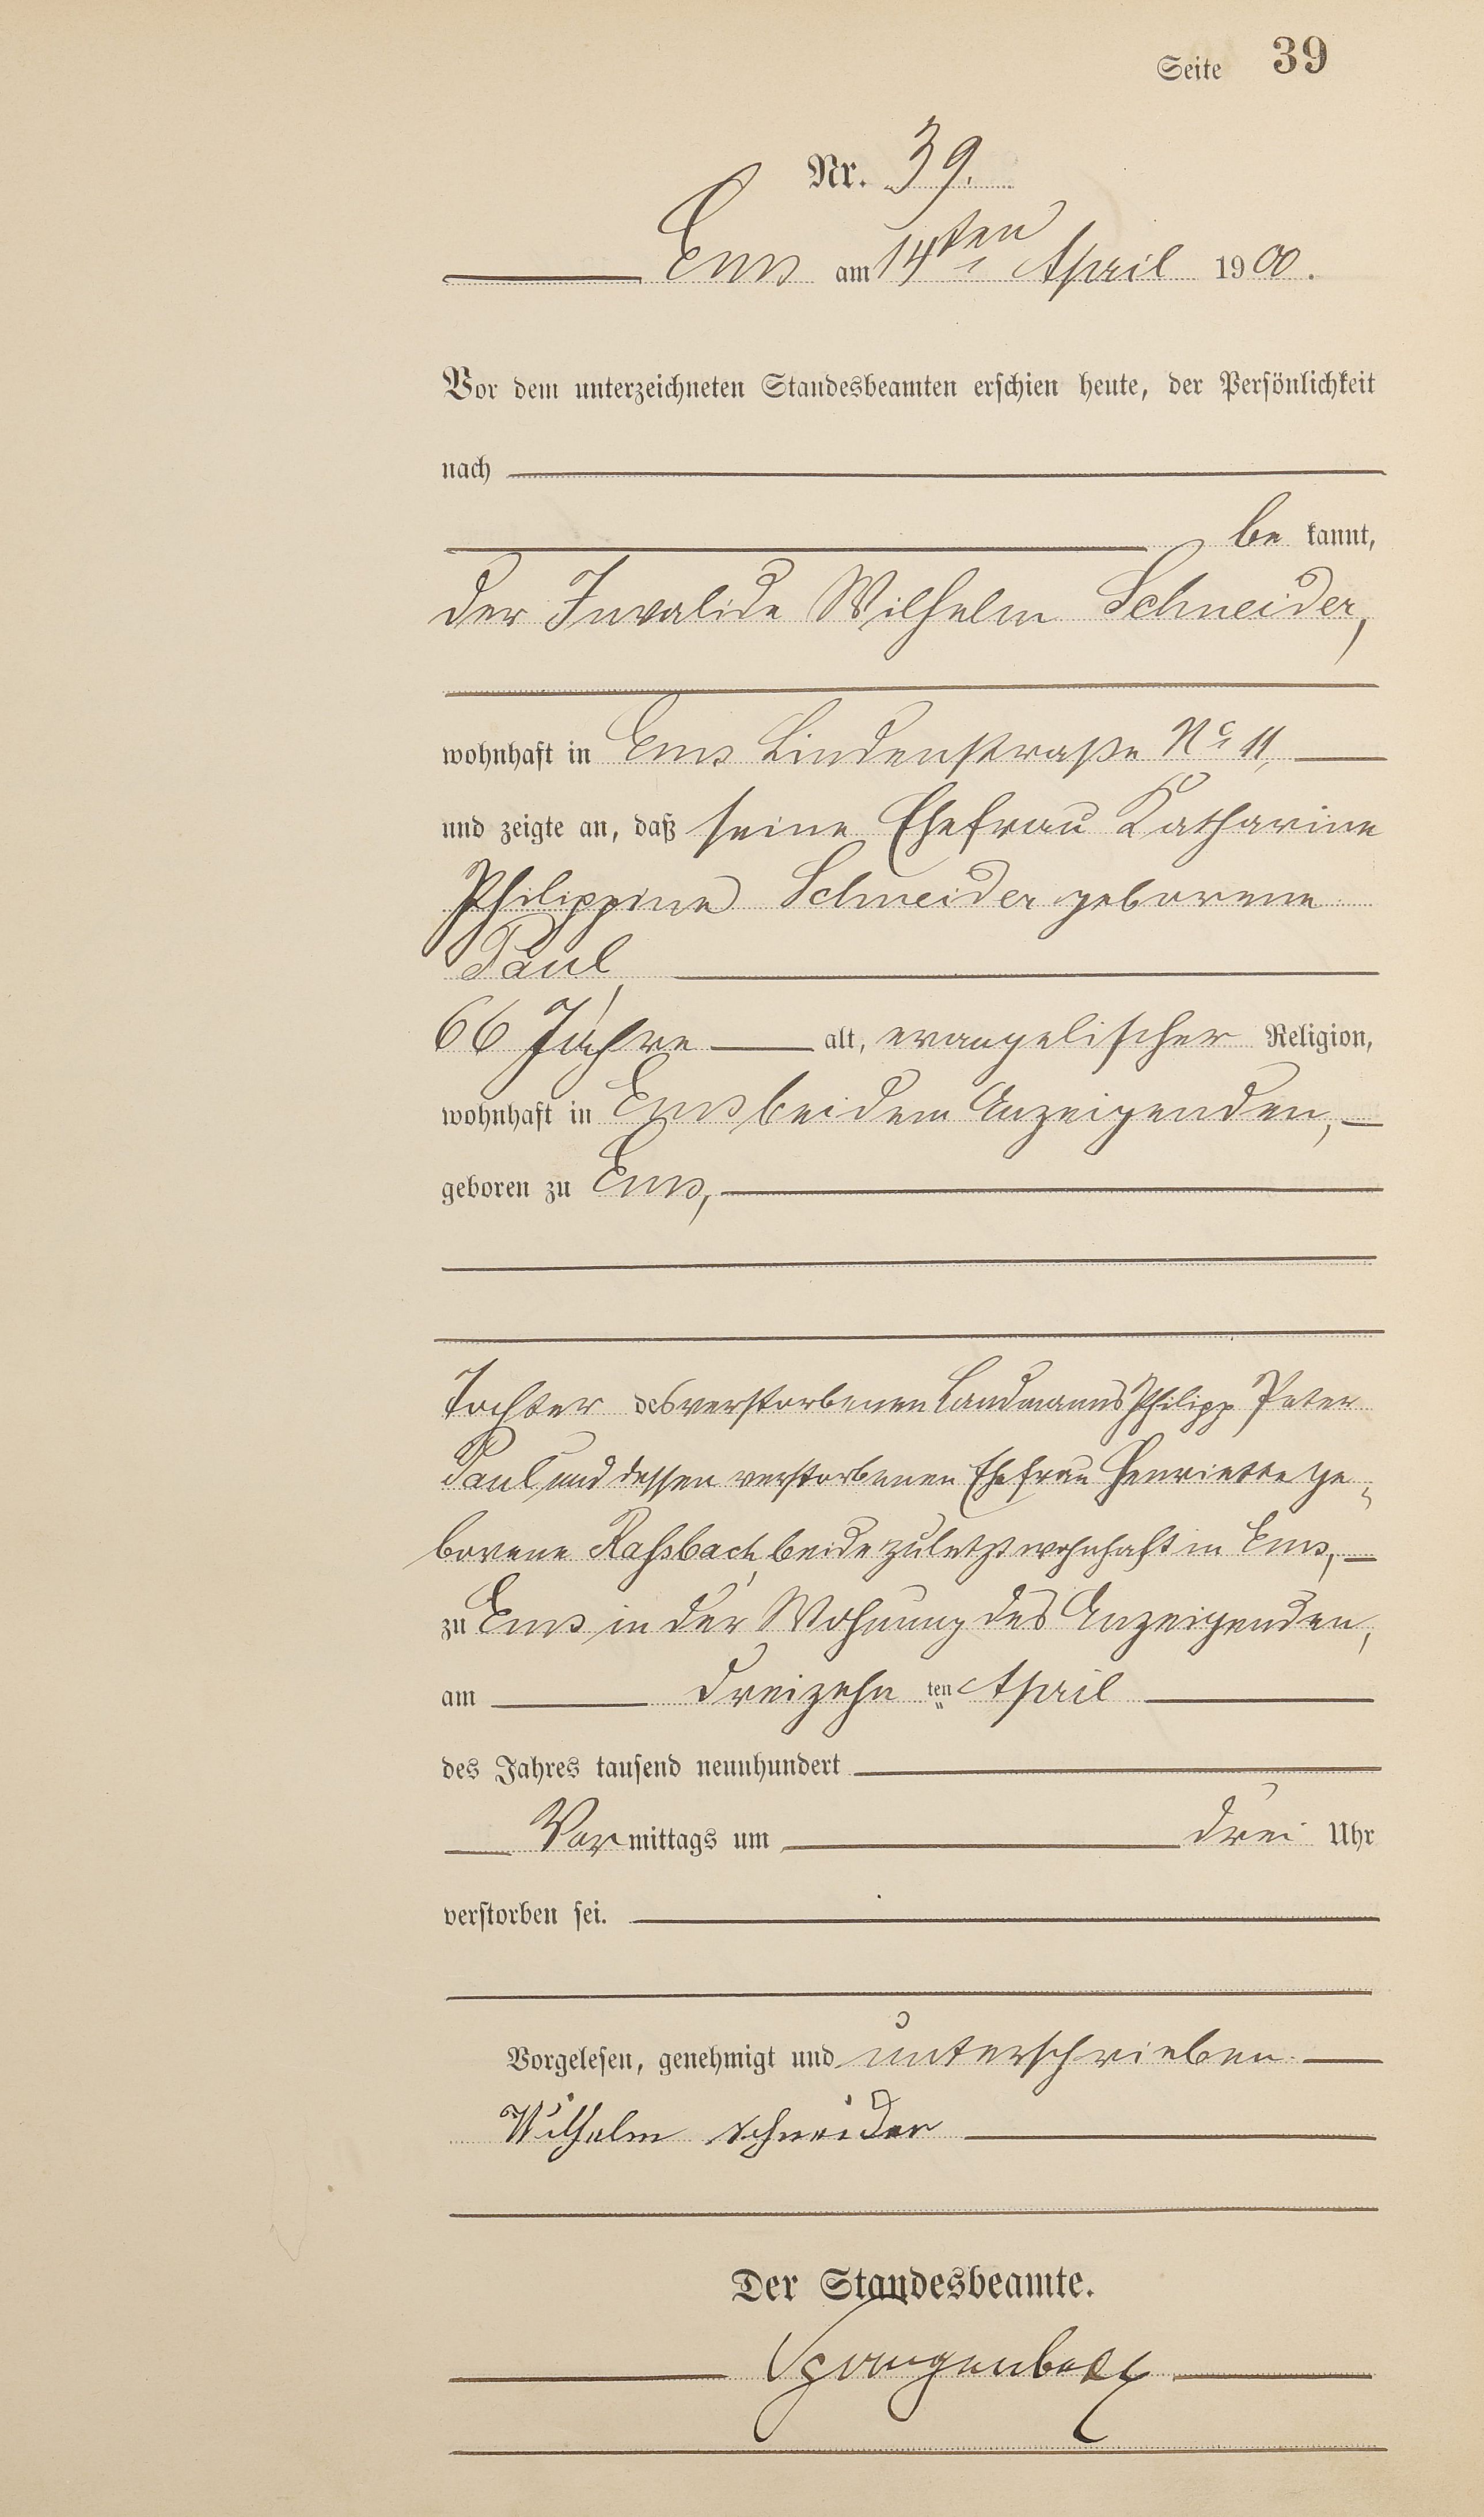 Seite 39
Nr. 39.
Ems am 14ten April 1900.
Vor dem unterzeichneten Standesbeamten erschien heute, der Persönlichkeit
nach
be kannt,
der Invalide Wilhelm Schneider,
wohnhaft in Ems Lindenstraße No 11,
und zeigte an, daß seine Ehefrau Katharine
Philippine Schneider geborene
Paul,
66 Jahre alt, evangelischer Religion,
wohnhaft in Ems bei dem Anzeigenden,
geboren zu Ems,
Tochter des verstorbenen Landmanns Philipp Peter
Paul und dessen verstorbenen Ehefrau Henriette ge-
borene Raßbach, beide zuletzt wohnhaft in Ems,
zu Ems in der Wohnung des Anzeigenden,
am dreizehn ten April
des Jahres tausend neunhundert
Vor mittags um drei Uhr
verstorben sei.
Vorgelesen, genehmigt und unterschrieben
Wilhelm Schneider
Der Standesbeamte.